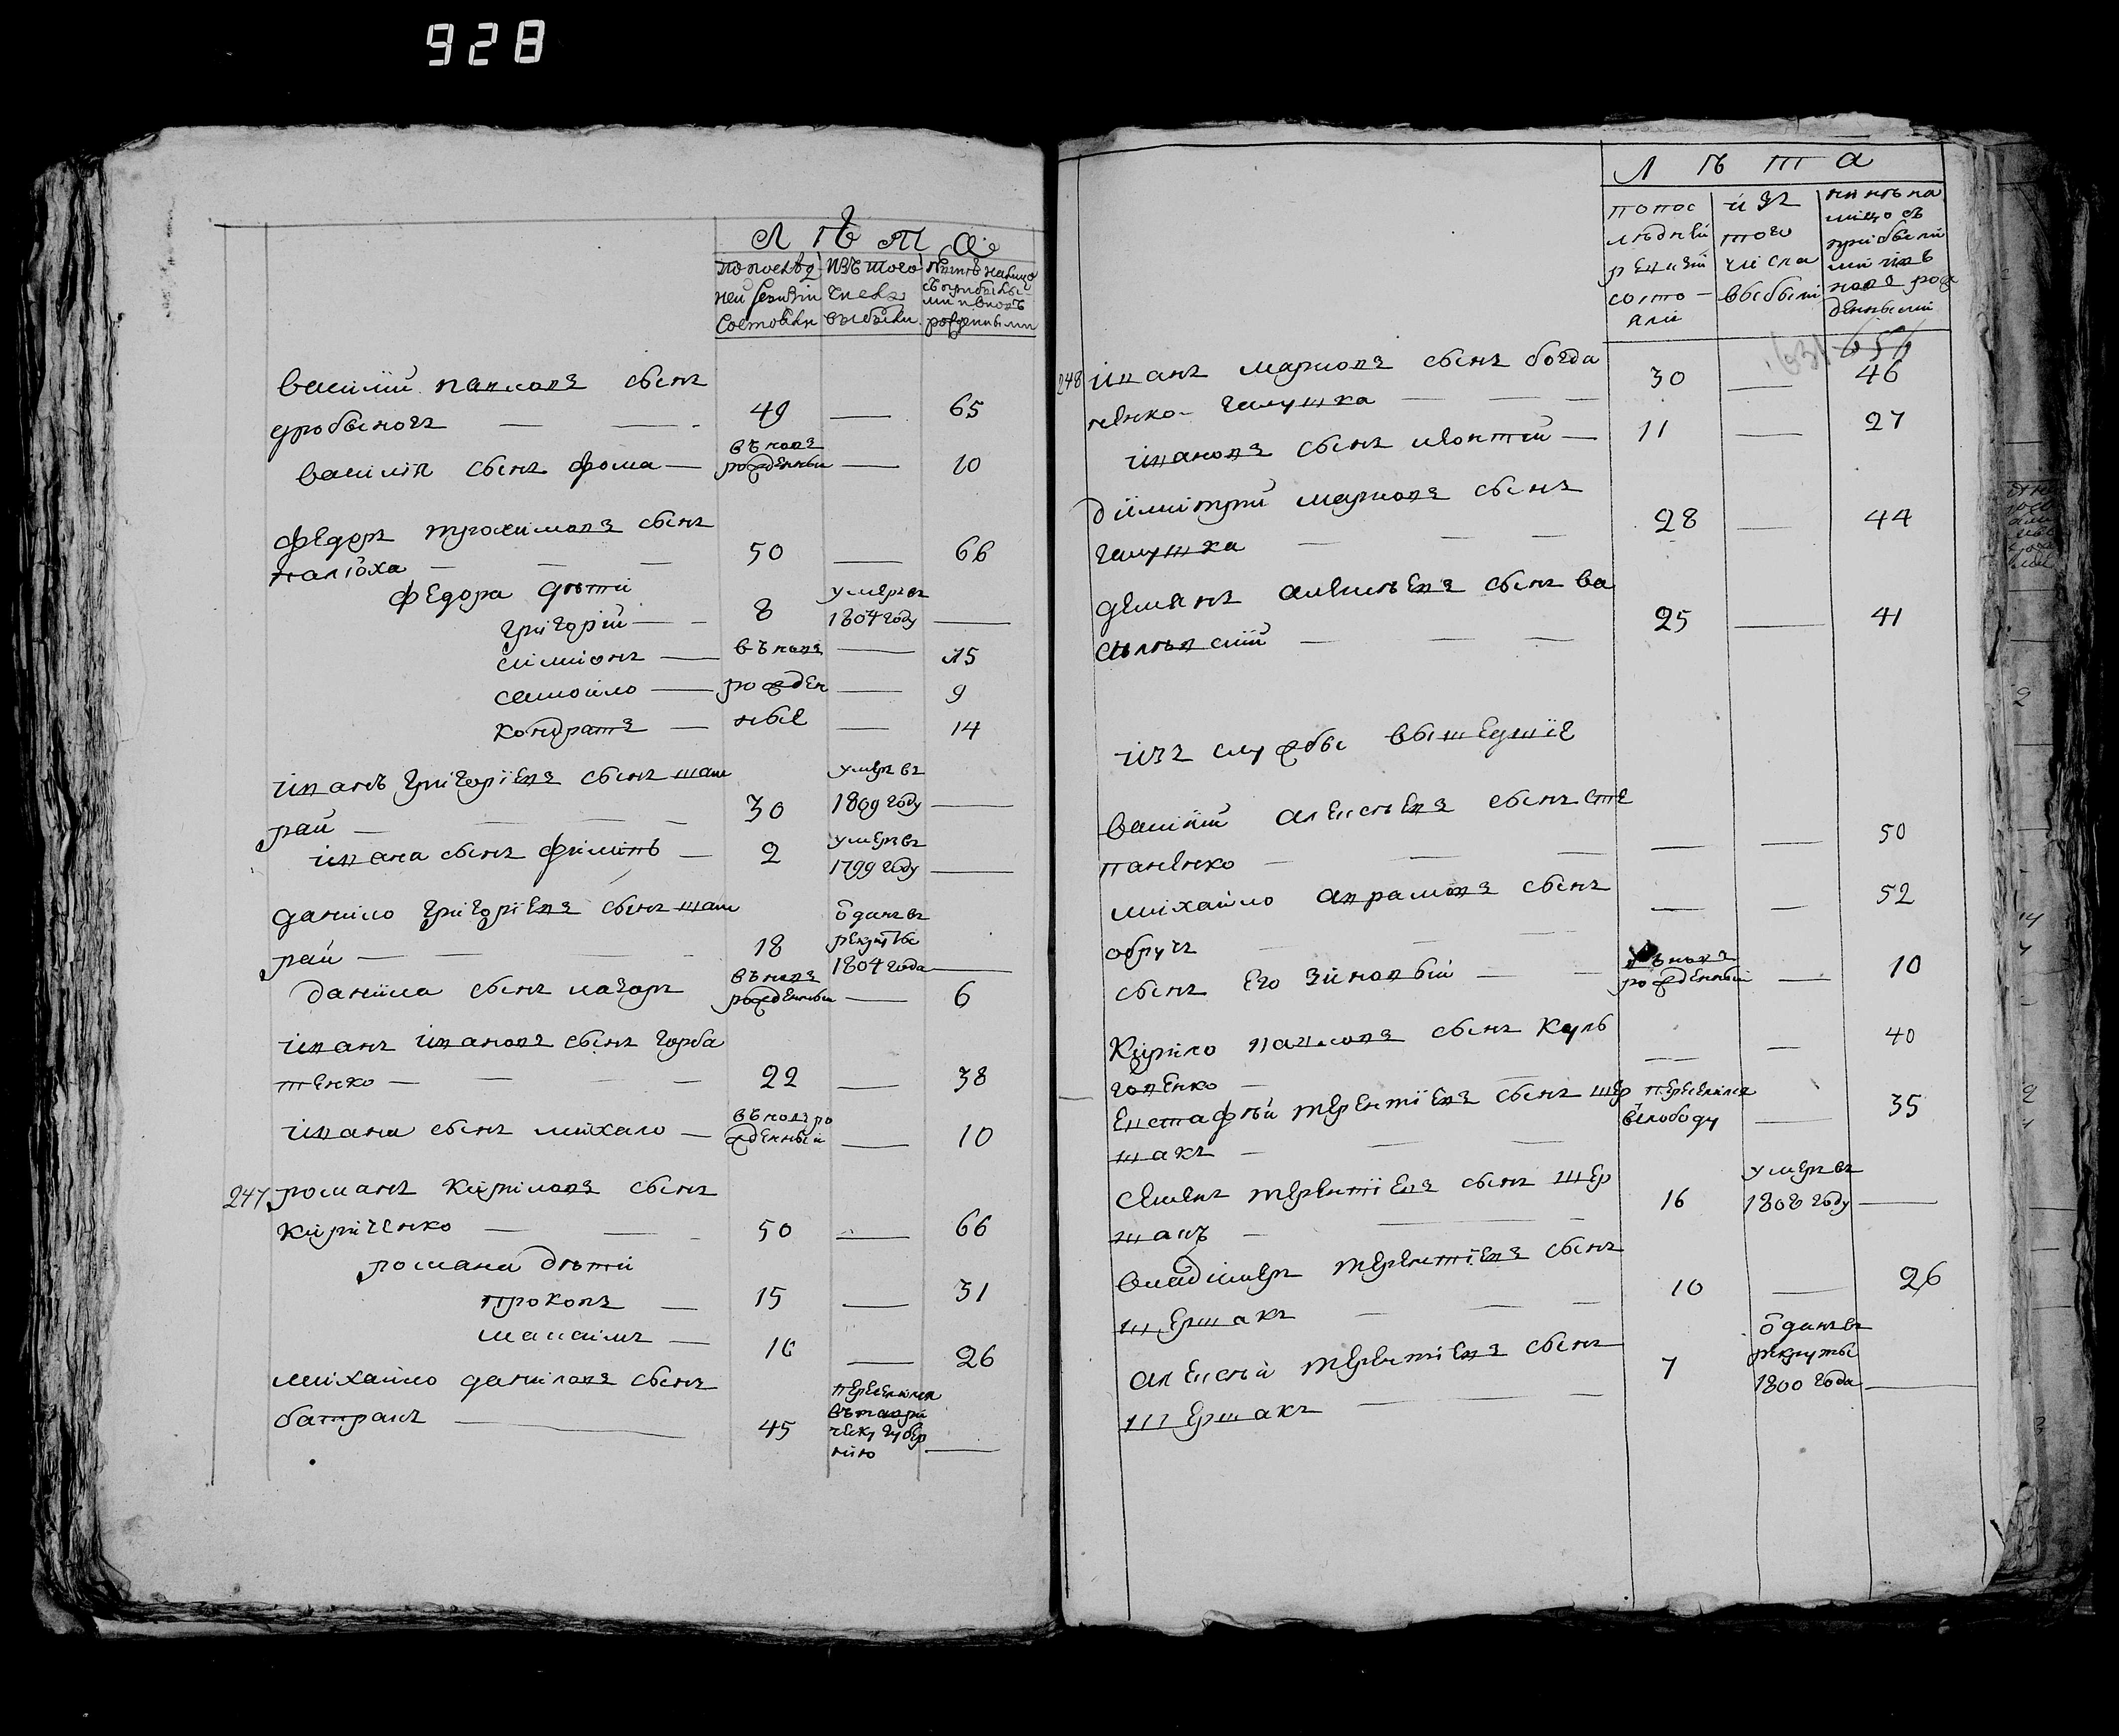 928
Л Ѣ Т А
По послѣд изъ того Нынѣ налицо
ней ревизіи числа съ прибылы-
состояли выбыли ми и вновь
рожденными
василий павловъ сынъ
дробыновъ — 49 — 65
василія сынъ фома — въновъ рожденный — 10
федоръ трохимовъ сынъ
палюха — 50 — 66
федора дѣти
григорій — 8 умеръ въ 1804 году —
симионъ — въновь — 15
самойло — рожден — 9
кондратъ — ные — 14
иванъ григоріевъ сынъ шам
рай — 30 умеръ въ 1809 году —
ивана сынъ филипъ — 2 умеръ въ 1799 году —
данило григоріевъ сынъ шам
рай — 18 ѿданъ въ рекруты 1804 года —
данила сынъ лазоръ въновъ рожденный — 6
иванъ ивановъ сынъ горба
тенко — 22 — 38
ивана сынъ михайло — въновъ рожденный — 10
247 романъ кириловъ сынъ
кириченко — 50 — 66
романа дѣти
прокопъ — 15 — 31
максимъ — 10 — 26
михайло даниловъ сынъ
батракъ — 45 переселился въ таври ческу губер нию —
Л Ѣ Т А
попос изъ нинѣ на
лѣдней того лицо съ
ревизіи числа прибылы
состо- выбыли ми ивъ
яли новъ рож
денными
656
248 иванъ марковъ сынъ богда
ненко-галушка — 30 — 46
ивановъ сынъ леонтий — 11 — 27
димитрий марковъ сынъ
галушка — 28 — 44
демянъ алексѣевъ сынъ ва
силѣвский — 25 — 41
изъ службы вышедшіе
василий алексѣевъ сынъ сте
паненко — — — 50
михайло аврамовъ сынъ
обручъ — — — 52
сынъ его зиновъий — въновъ рожденный — 10
Кирило павловъ сынъ Куль
говенко — — — 40
евстафѣй терентіевъ сынъ шер переселился
шакъ — вслободу — 35
семенъ терентіевъ сынъ шер
шакъ — 16 умеръ въ 1808 году —
владимеръ терентіевъ сынъ
шершакъ — 10 — 26
алексѣй терентіевъ сынъ
шершакъ — 7 ѿданъ въ рекруты 1800 года —